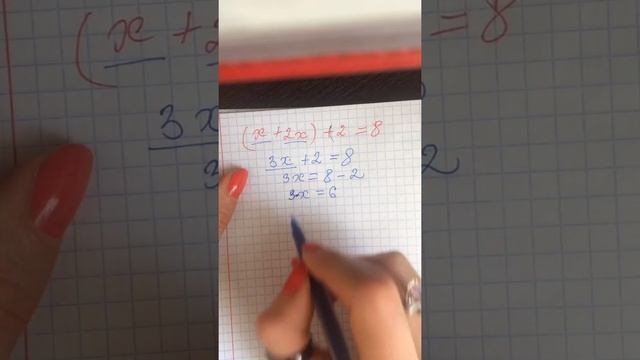 (x + 2x) + 2 = 8
3x + 2 = 8
3x = 8 - 2
3x = 6